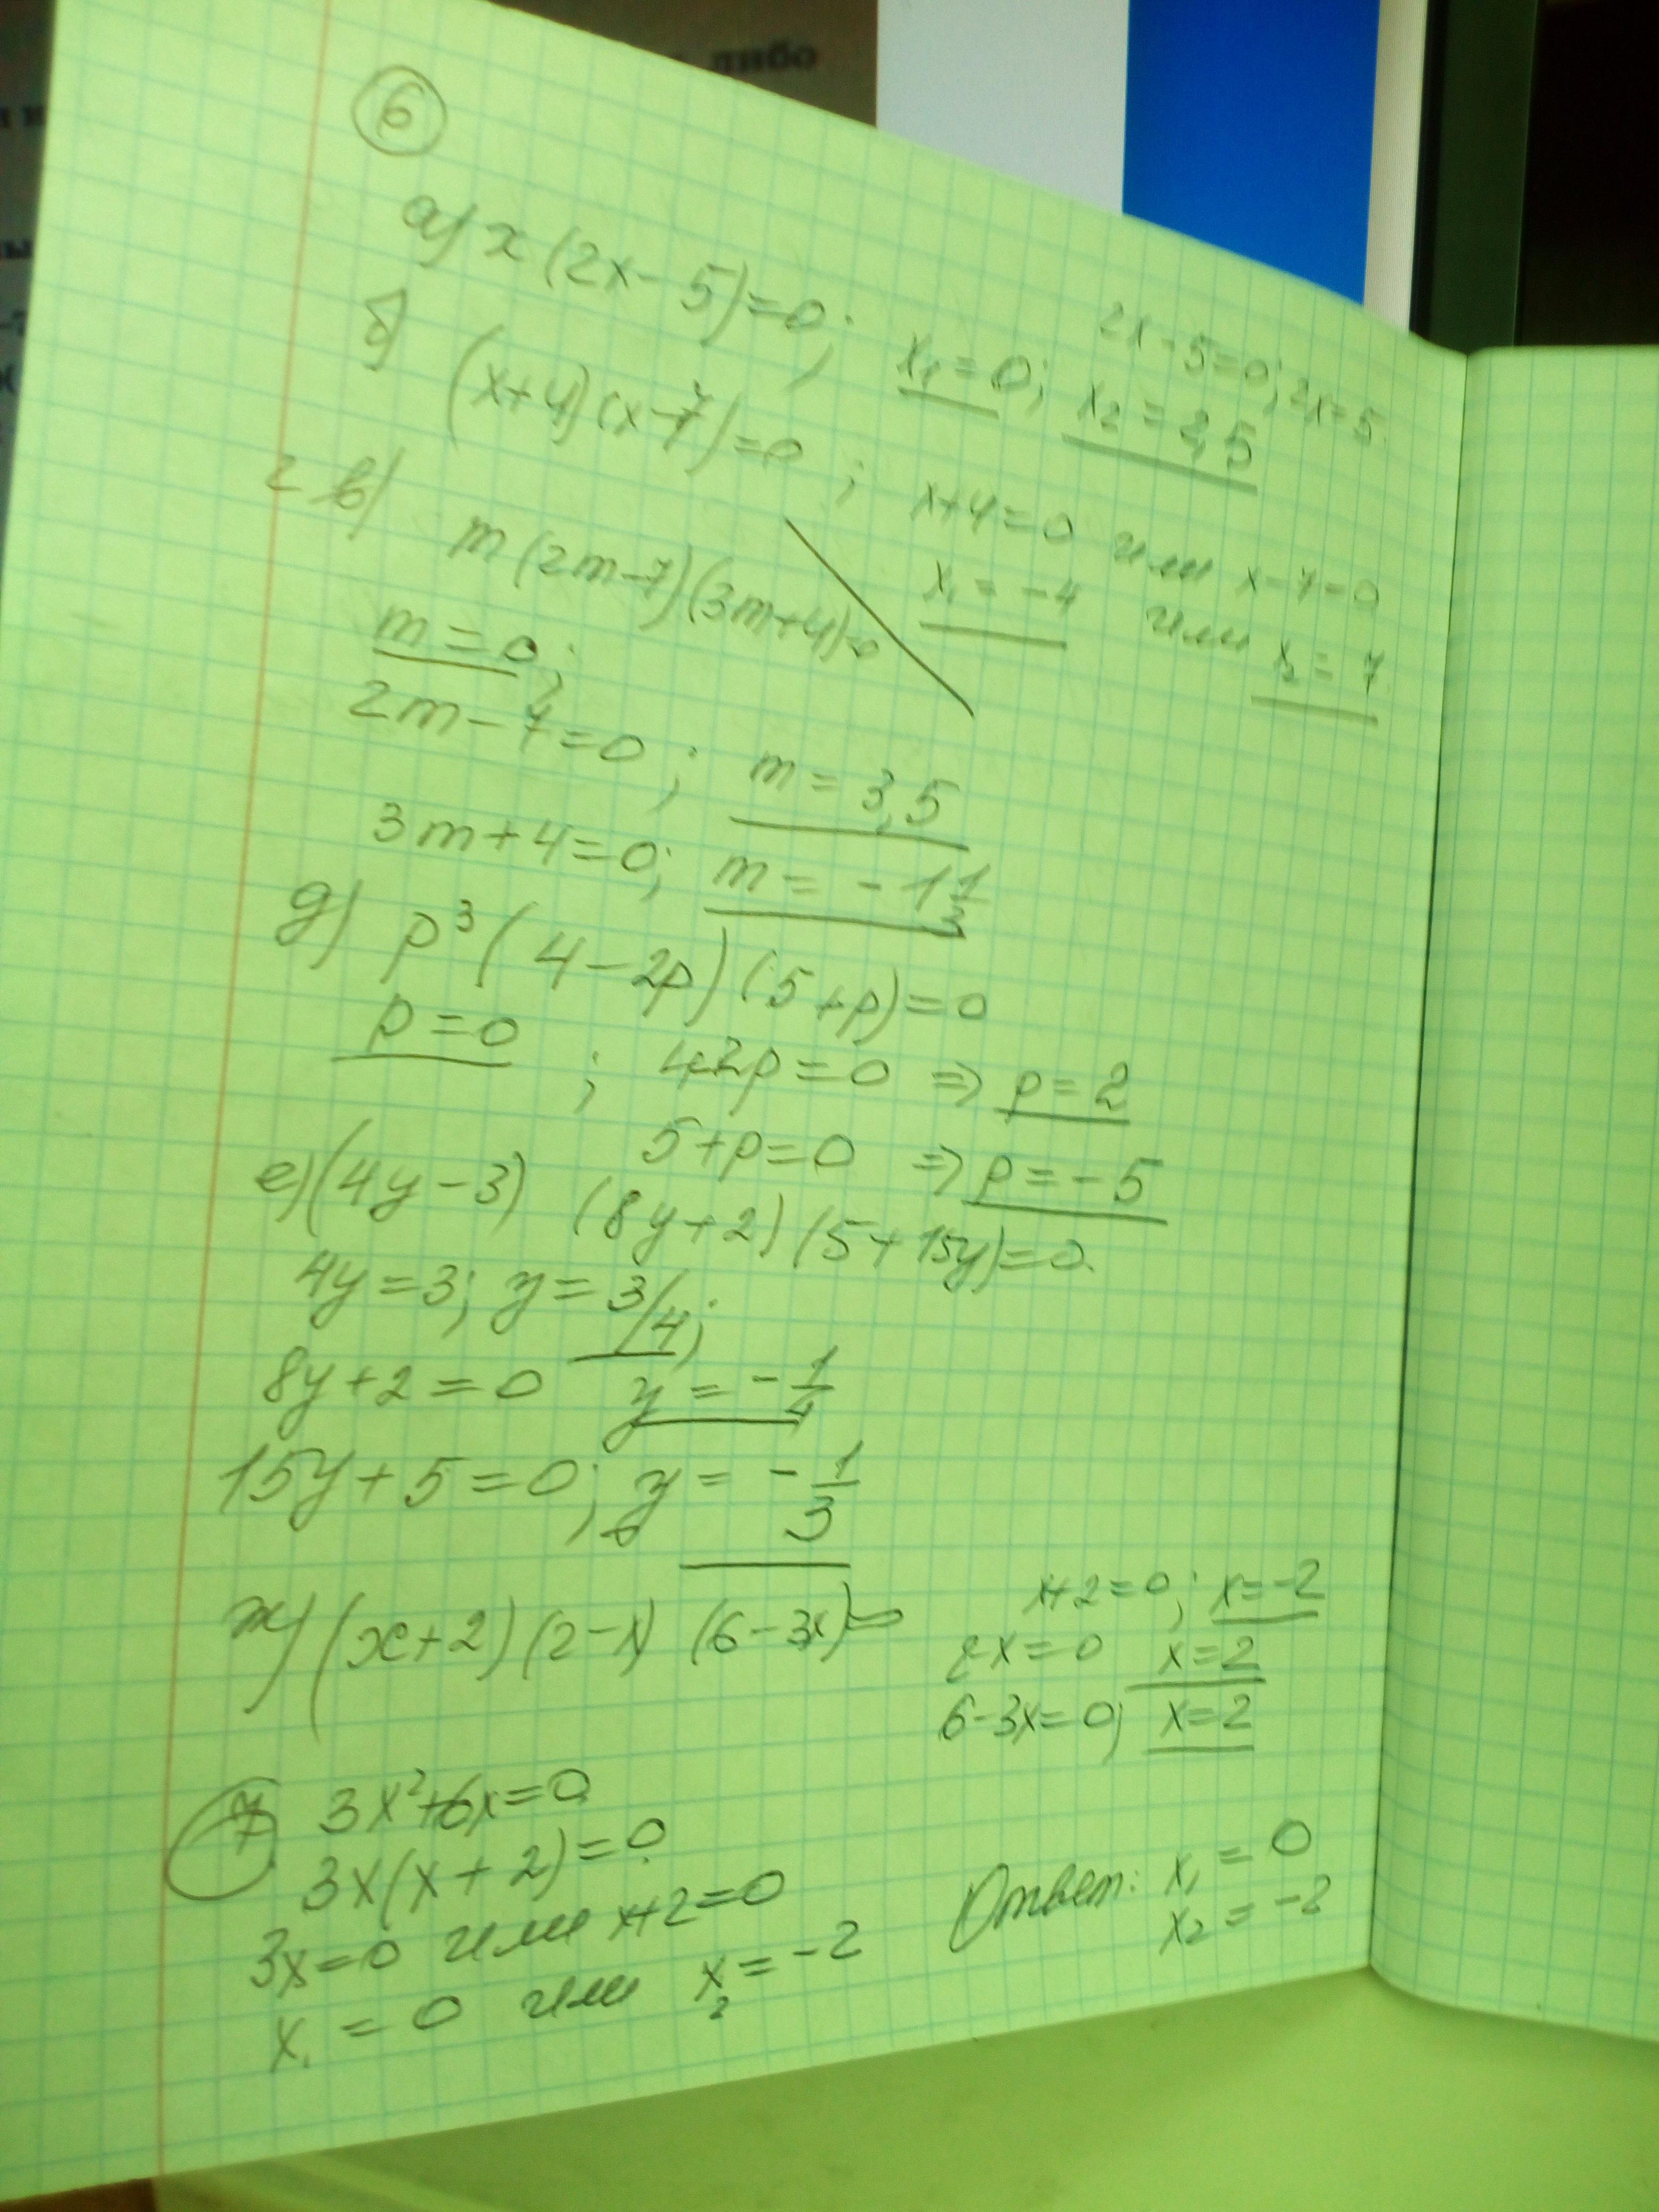 либо
6
а) x(2x-5)=0; x₁=0; x₂=2,5
2x-5=0; 2x=5.
б) (x+4)(x-7)=0; x+4=0 или x-7=0
x₁=-4 или x₂=7
г в) m(2m-7)(3m+4)=0
m=0;
2m-7=0; m=3,5
3m+4=0; m=-1 1/3
д) p³(4-2p)(5+p)=0
p=0; 4-2p=0 ⇒ p=2
5+p=0 ⇒ p=-5
е) (4y-3)(8y+2)(5+15y)=0.
4y=3; y=3/4;
8y+2=0 y=-1/4
15y+5=0; y=-1/3
ж) (x+2)(2-x)(6-3x)=0
x+2=0; x=-2
2-x=0 x=2
6-3x=0; x=2
7 3x²+6x=0
3x(x+2)=0
3x=0 или x+2=0
x₁=0 или x₂=-2
Ответ: x₁=0
x₂=-2